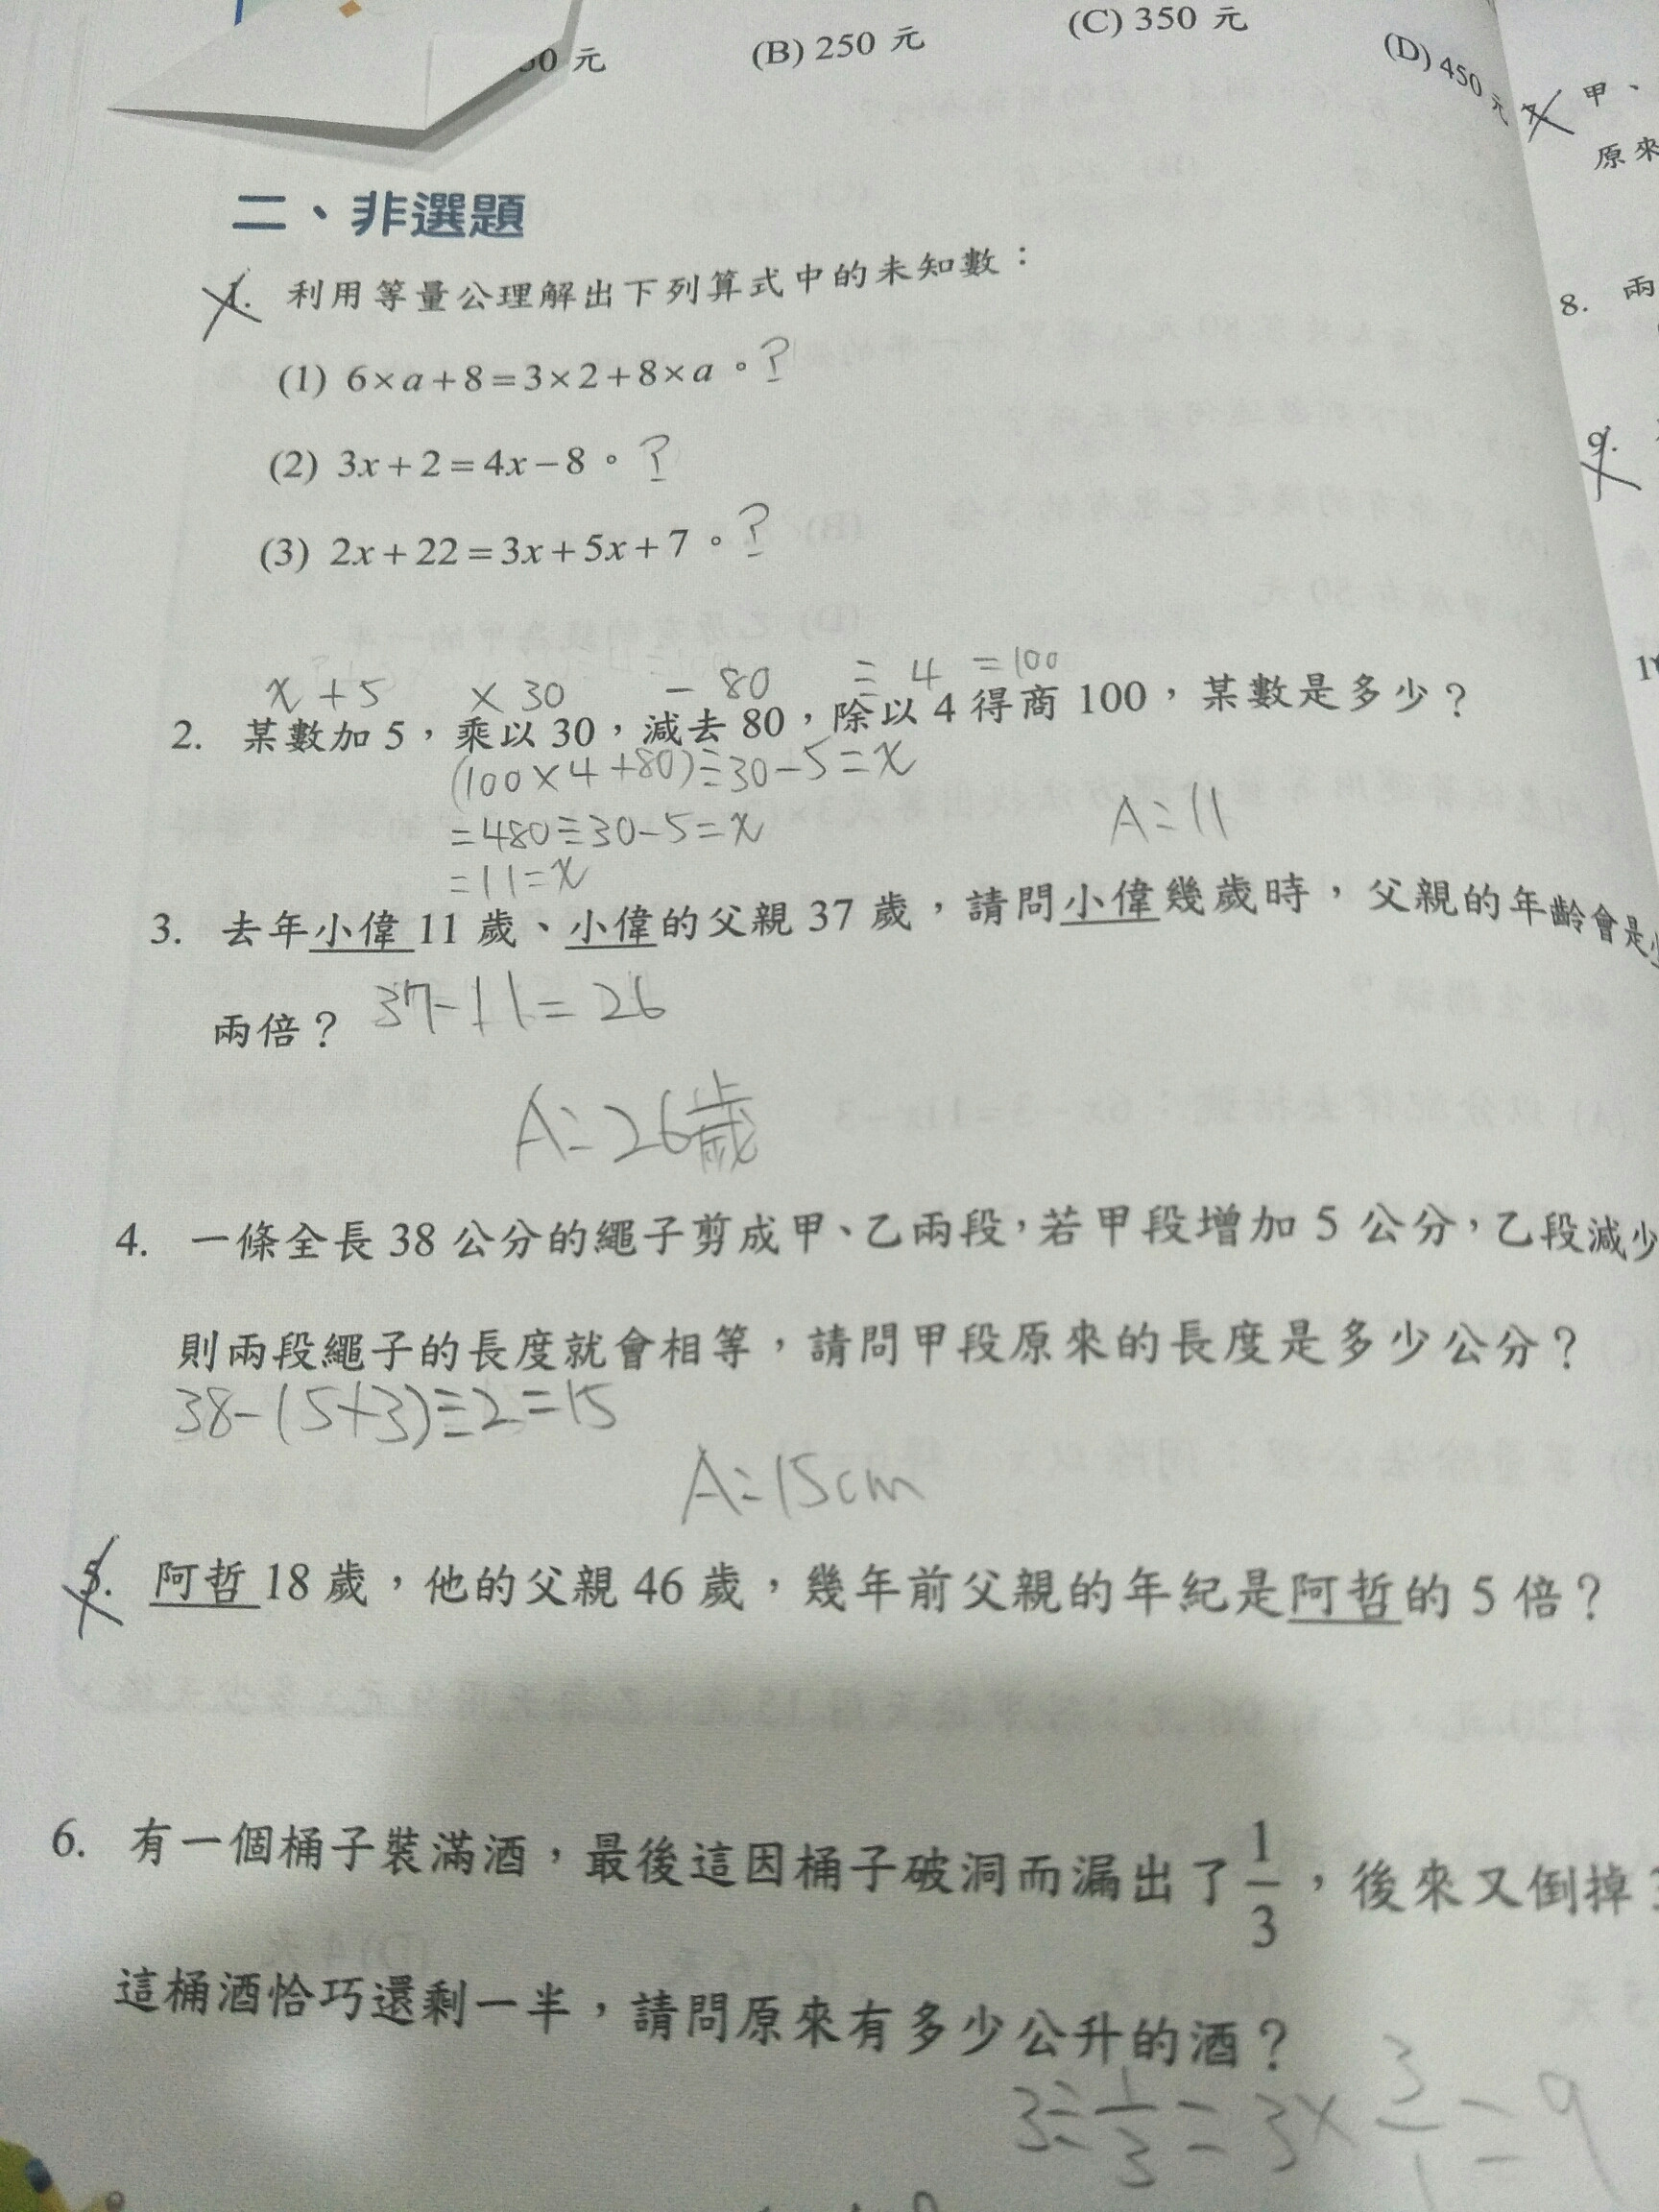 0 元 (B) 250 元 (C) 350 元 (D) 450 元
二、非選題
1. 利用等量公理解出下列算式中的未知數：
(1) 6×a+8=3×2+8×a。?
(2) 3x+2=4x-8。?
(3) 2x+22=3x+5x+7。?
x+5 ×30 -80 ÷4 =100
2. 某數加 5，乘以 30，減去 80，除以 4 得商 100，某數是多少？
(100×4+80)÷30-5=x
=480÷30-5=x
=11=x
A=11
3. 去年小偉 11 歲、小偉的父親 37 歲，請問小偉幾歲時，父親的年齡會是
兩倍？ 37-11=26
A=26歲
4. 一條全長 38 公分的繩子剪成甲、乙兩段，若甲段增加 5 公分，乙段減少
則兩段繩子的長度就會相等，請問甲段原來的長度是多少公分？
38-(5+3)÷2=15
A=15cm
5. 阿哲 18 歲，他的父親 46 歲，幾年前父親的年紀是阿哲的 5 倍？
6. 有一個桶子裝滿酒，最後這因桶子破洞而漏出了 1/3，後來又倒掉
這桶酒恰巧還剩一半，請問原來有多少公升的酒？
3÷1/3=3×3/1=9
甲、
原來
8. 兩
9.